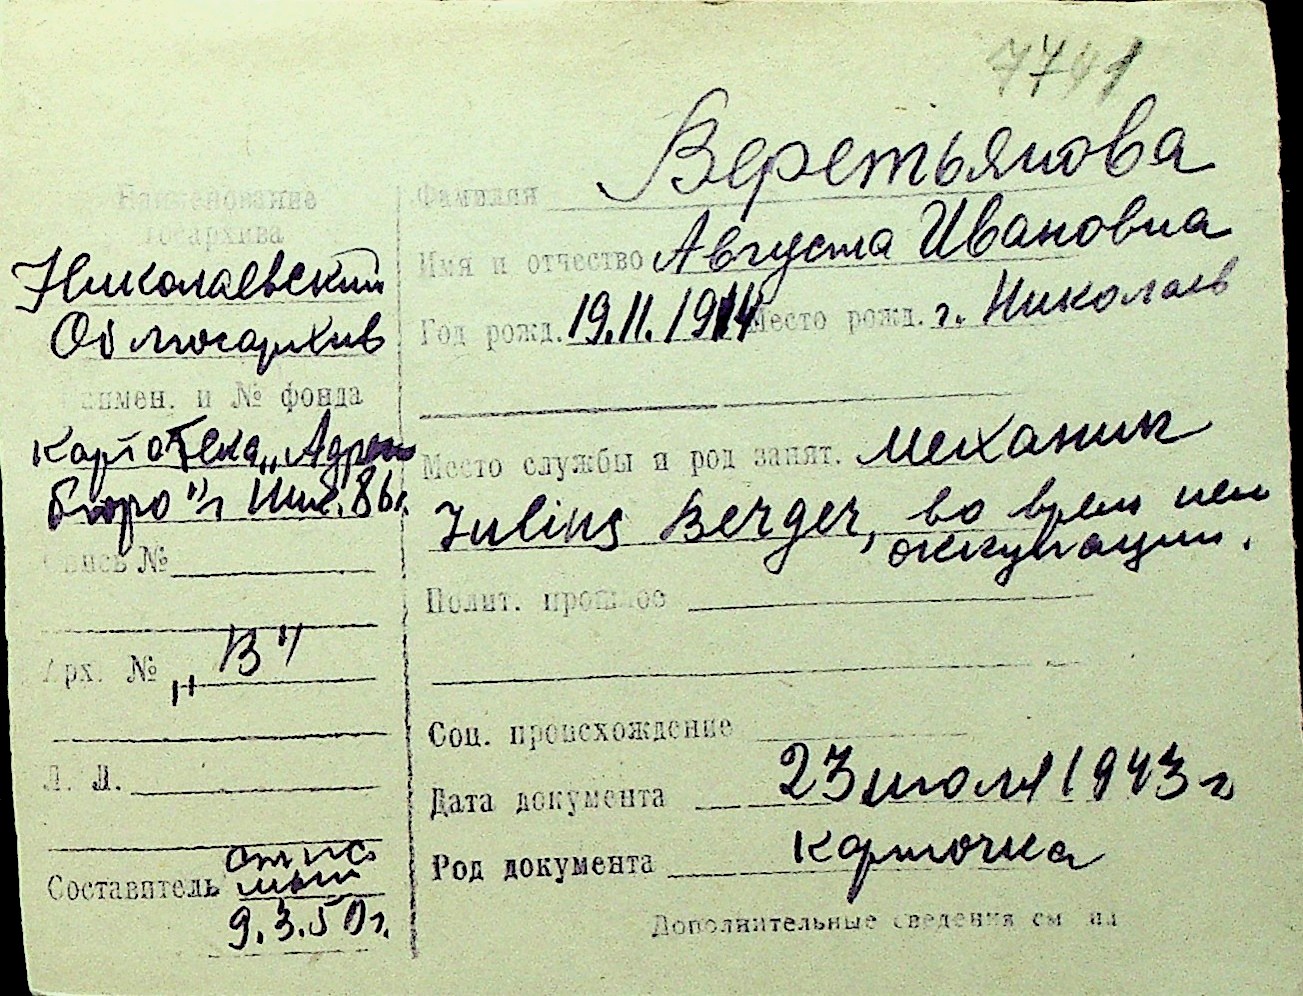 7741
Наименование
госархива
Николаевский
Облгосархив
Наимен. и № фонда
картотека „Адрес
бюро" г. Ник. 86 г.
Опись №
Арх. № „В"
Л. Л.
Составитель
9.3.50 г.
Фамилия Веретьянова
Имя и отчество Августа Ивановна
Год рожд. 19.11.1914 Место рожд. г. Николаев
Место службы и род занят. механик
Julius Berger, во врем нем
оккупации.
Полит. прошлое
Соц. происхождение
Дата документа 23 июля 1943 г
Род документа карточка
Дополнительные сведения см на